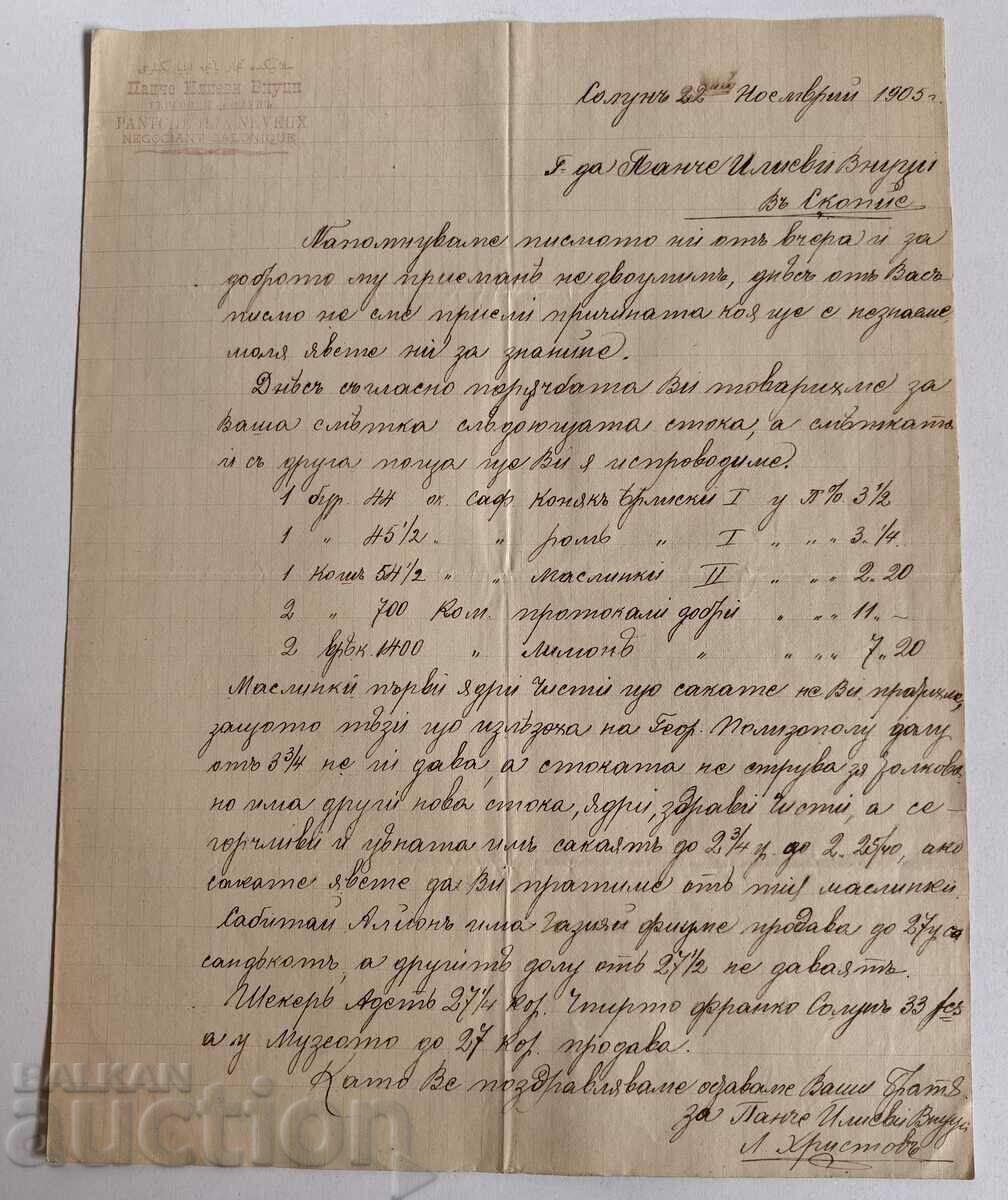 Панче Илиеви Внуци
NEGOCIANT SALONIQUE
Солунъ 22ий Ноемврий 1905 г.
Г-да Панче Илиеви Внуци
Въ Скопие
Напомнуваме писмото ни отъ вчера и за
доброто му приемание не двоумимъ, днесъ отъ Васъ
писмо не сме приели причината коя ще е незнаеме,
моля явете ни за знание.
Днѣсъ съгласно порѫчбата Ви товарихме за
Ваша смѣтка слѣдующата стока, а смѣтката
ѝ съ друга поща ще Ви я испроводиме.
1 бур. 44 ок. саф. конякъ I у п% 3 1/2
1 " 45 1/2 " " ромъ " I " " " 3 1/4.
1 Кошъ 54 1/2 " " маслинки II " " " 2 " 20
2 " 700 Ком. протокали добри " " " 11 " –
2 1400 " Лимонъ " " " " 7 " 20
Маслинки първи ядри чисти що сакате не Ви пратихме,
защото тѣзи що излѣзоха на Геор. Полизополу долу
отъ 3 3/4 не ги дава, а стоката не струва за толкова
но има други нова стока, ядри, здрави чисти, а се
горчливи и цѣната имъ сакаятъ до 2 3/4 гр. до 2 " 25, ако
сакате явете да Ви пратиме отъ тия маслинки.
Сабитай Алионъ има газияй фиуме продава до 27
сандѫкотъ, а другитѣ долу отъ 27 1/2 не даваятъ.
Шекеръ Адетъ 27 1/4 кор. Спирто франко Солунъ 33 fcs
а у Музеото до 27 кор. продава.
Като Ве поздравляваме оставаме Ваши Братя
за Панче Илиеви Внуци
Л. Христовъ
BALKAN
auction